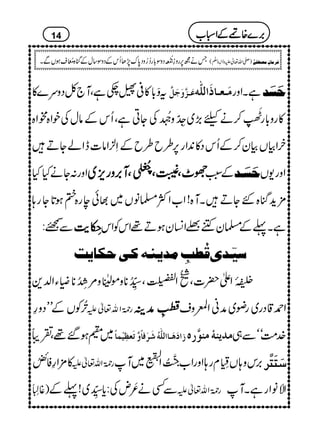 برے خاتمے کے اسباب 14
فرمانِ مصطفےٰ (صلی اللہ تعالیٰ علیہ والہٖ وسلم) جس نے مجھ پر روزِ جمعہ دو سو بار دُرودِ پاک پڑھا اُس کے دو سو سال کے گناہ مُعاف ہوں گے۔
حَسَد ہے۔ اور مَعاذَ اللہ عَزَّوَجَلَّ یہ وبا کافی پھیل چکی ہے، آج کل دوسرے کا
کاروبار ٹھپ کرنے کیلئے بڑی جِدّوجُہد کی جاتی ہے، اُس کے مال کی خوامخواہ
خرابیاں بیان کر کے اُس دکاندار پر طرح طرح کے اِلزامات ڈالے جاتے ہیں
اور یوں حَسَد کے سبب جھوٹ، غیبت، چُغلی، آبروریزی اور نہ جانے کیا کیا
مزید گناہ کئے جاتے ہیں۔ آہ! اب اکثر مسلمانوں میں بھائی چارہ ختم ہوتا جا رہا
ہے۔ پہلے کے مسلمان کتنے بھلے انسان ہوتے تھے اس کو اس حِکایت سے سمجھئے:
سیّدی قُطبِ مدینہ کی حکایت
خلیفۂ اعلیٰ حضرت، شیخُ الفضیلت، سیّدُنا و مولانا و مُرشِدُنا ضیاءُ الدین
احمد قادری رضوی مدنی المعروف قطبِ مدینہ رحمۃ اللہ تعالیٰ علیہ تُرکوں کے ’’دورِ
خدمت‘‘ سے ہی مدینۂ منوَّرہ زادَھَا اللہُ شَرَفًا وَّتَعظِیمًا میں مقیم ہو گئے تھے، تقریباً
سَتَتَّر برس وہاں قِیام رہا اور اب جنَّتُ البقیع میں آپ رحمۃ اللہ تعالیٰ علیہ کا مزارِ فائض
الانوار ہے۔ آپ رحمۃ اللہ تعالیٰ علیہ سے کسی نے عرض کی: یا سیّدی! پہلے کے (غالباً